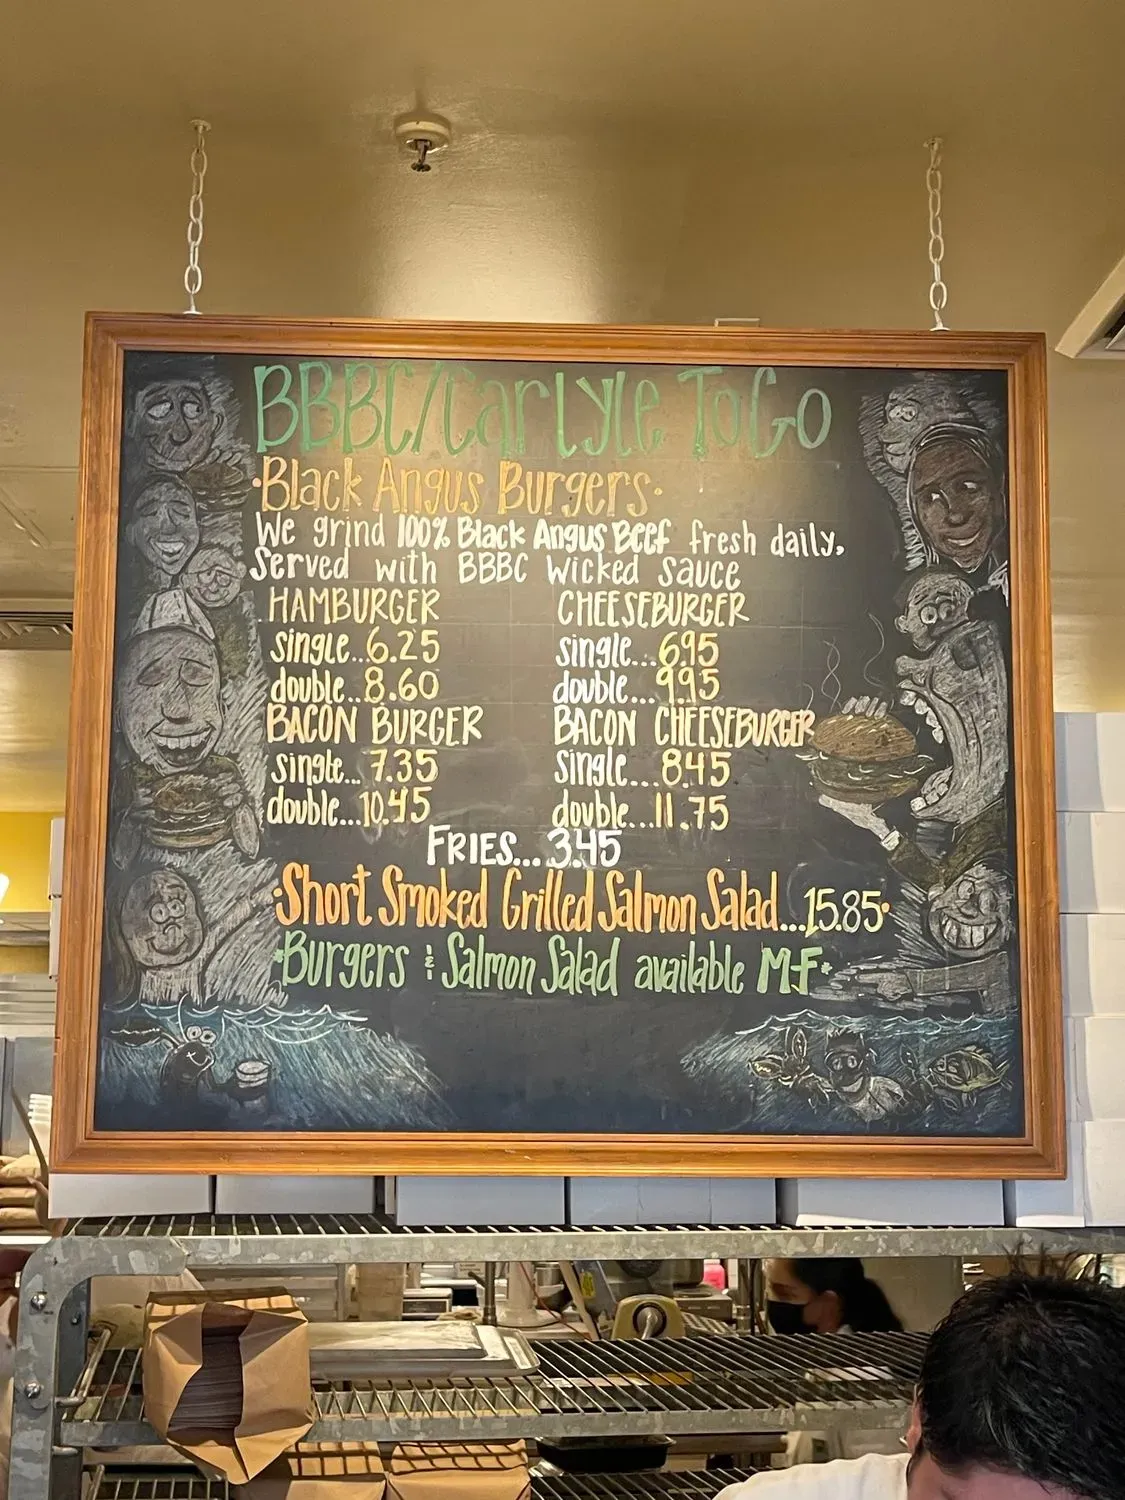 BBBC/Carlyle ToGo
·Black Angus Burgers·
We grind 100% Black Angus Beef fresh daily,
Served with BBBC Wicked Sauce
HAMBURGER CHEESEBURGER
single...6.25 single...6.95
double...8.60 double...9.95
BACON BURGER BACON CHEESEBURGER
single...7.35 single...8.45
double...10.45 double...11.75
FRIES...3.45
·Short Smoked Grilled Salmon Salad...15.85·
·Burgers & Salmon Salad available M-F·